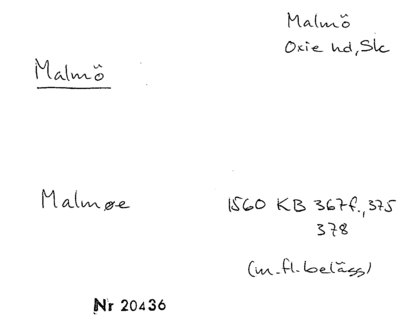 Malmö
Oxie hd, Sk
Malmö
Malmøe
1560 KB 367f., 375
378
(m.fl. belägg)
Nr 20436